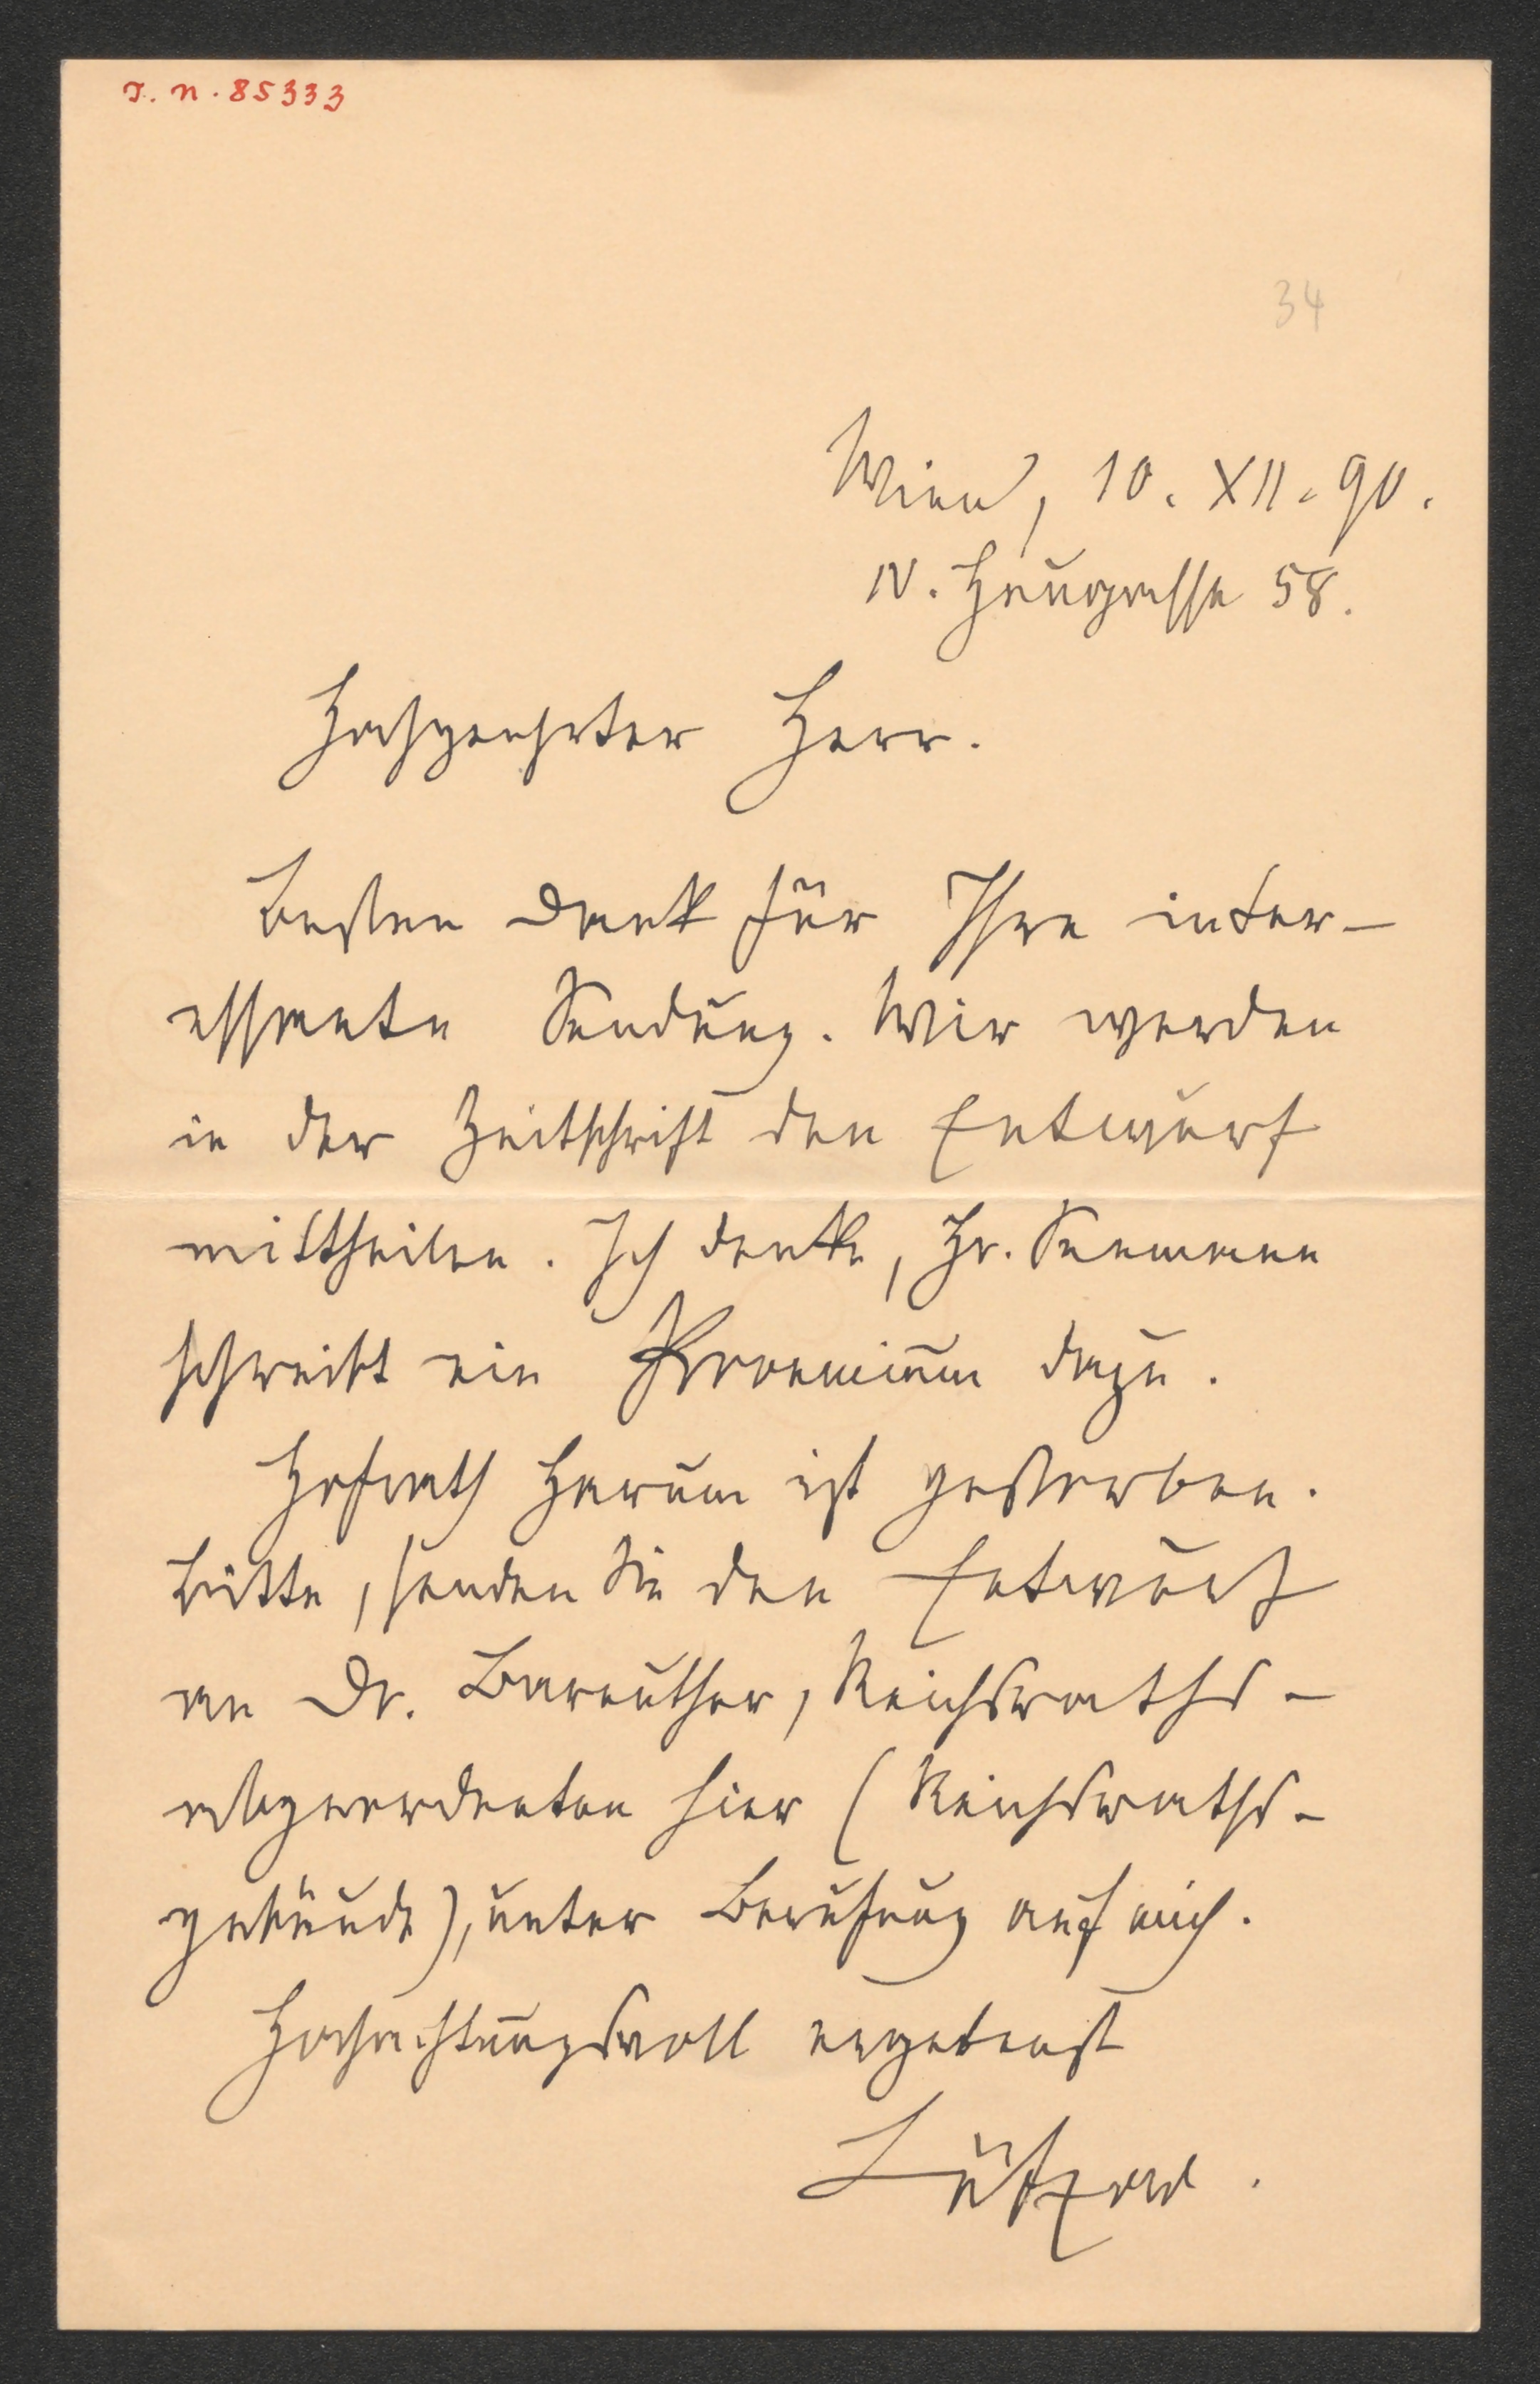 I. N. 85333
34
Wien, 10. XII. 90.
IV. Heugasse 58.
Hochgeehrter Herr.
Besten Dank für Ihre inter-
essante Sendung. Wir werden
in der Zeitschrift den Entwurf
mittheilen. Ich denke, Hr. Seemann
schreibt ein Prooemium dazu.
Hofrath Harum ist gestorben.
Bitte, senden Sie den Entwurf
an Dr. Bareuther, Reichsraths-
abgeordneten hier (Reichsraths-
gebäude), unter Berufung auf mich.
Hochachtungsvoll ergebenst
Lützow.